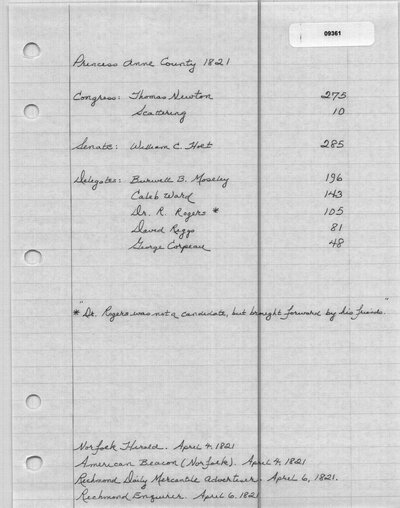 09361
Princess Anne County 1821
Congress: Thomas Newton 275
Scattering 10
Senate: William C. Holt 285
Delegates: Burwell B. Moseley 196
Caleb Ward 143
Dr. R. Rogers * 105
David Roggs 81
George Corpeau 48
"* Dr. Rogers was not a candidate, but brought forward by his friends."
Norfolk Herald. April 4, 1821
American Beacon (Norfolk). April 4, 1821
Richmond Daily Mercantile Advertiser. April 6, 1821.
Richmond Enquirer. April 6. 1821